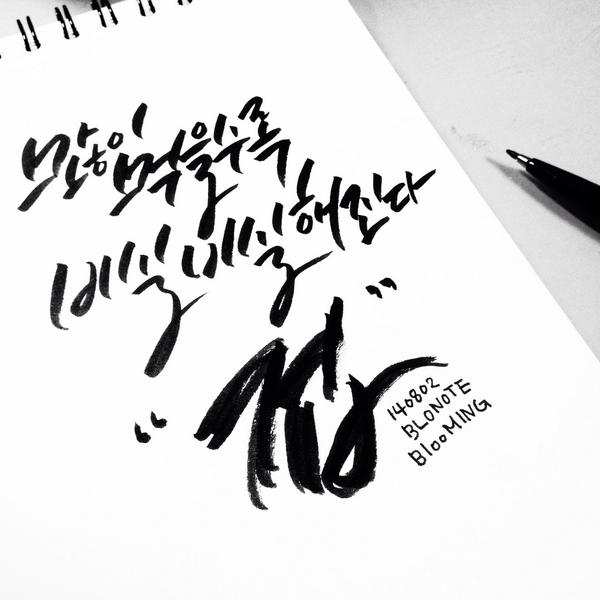 많이 먹을수록
비실비실해진다
“겁”
140802
BLONOTE
BlooMING